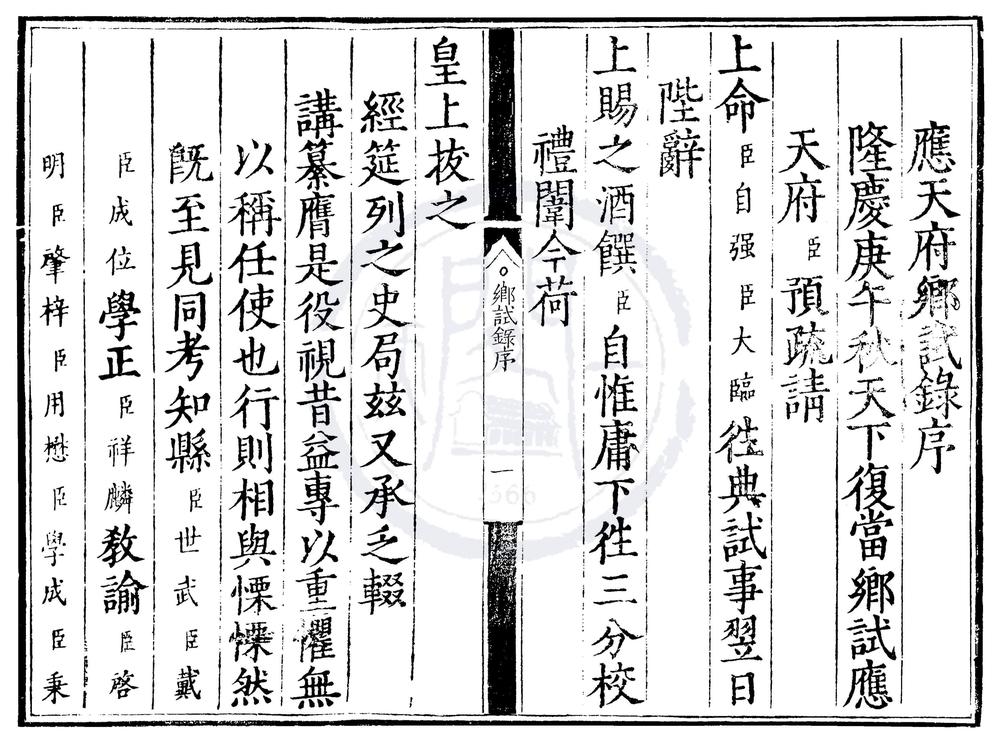 應天府鄉試錄序
隆慶庚午秋天下復當鄉試應
天府臣預疏請
上命臣自强臣大臨徃典試事翌日
陛辭
上賜之酒饌臣自惟庸下徃三分校
禮闈今荷
鄉試錄序
一
皇上拔之
經筵列之史局玆又承乏輟
講纂膺是役視昔益專以重懼無
以稱任使也行則相與慄慄然
旣至見同考知縣臣世武臣戴
臣成位學正臣祥麟敎諭臣啓
明臣肇梓臣用懋臣學成臣秉